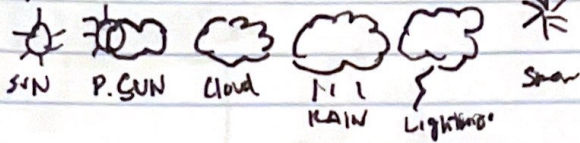 SUN P. SUN Cloud RAIN Lightning Snow